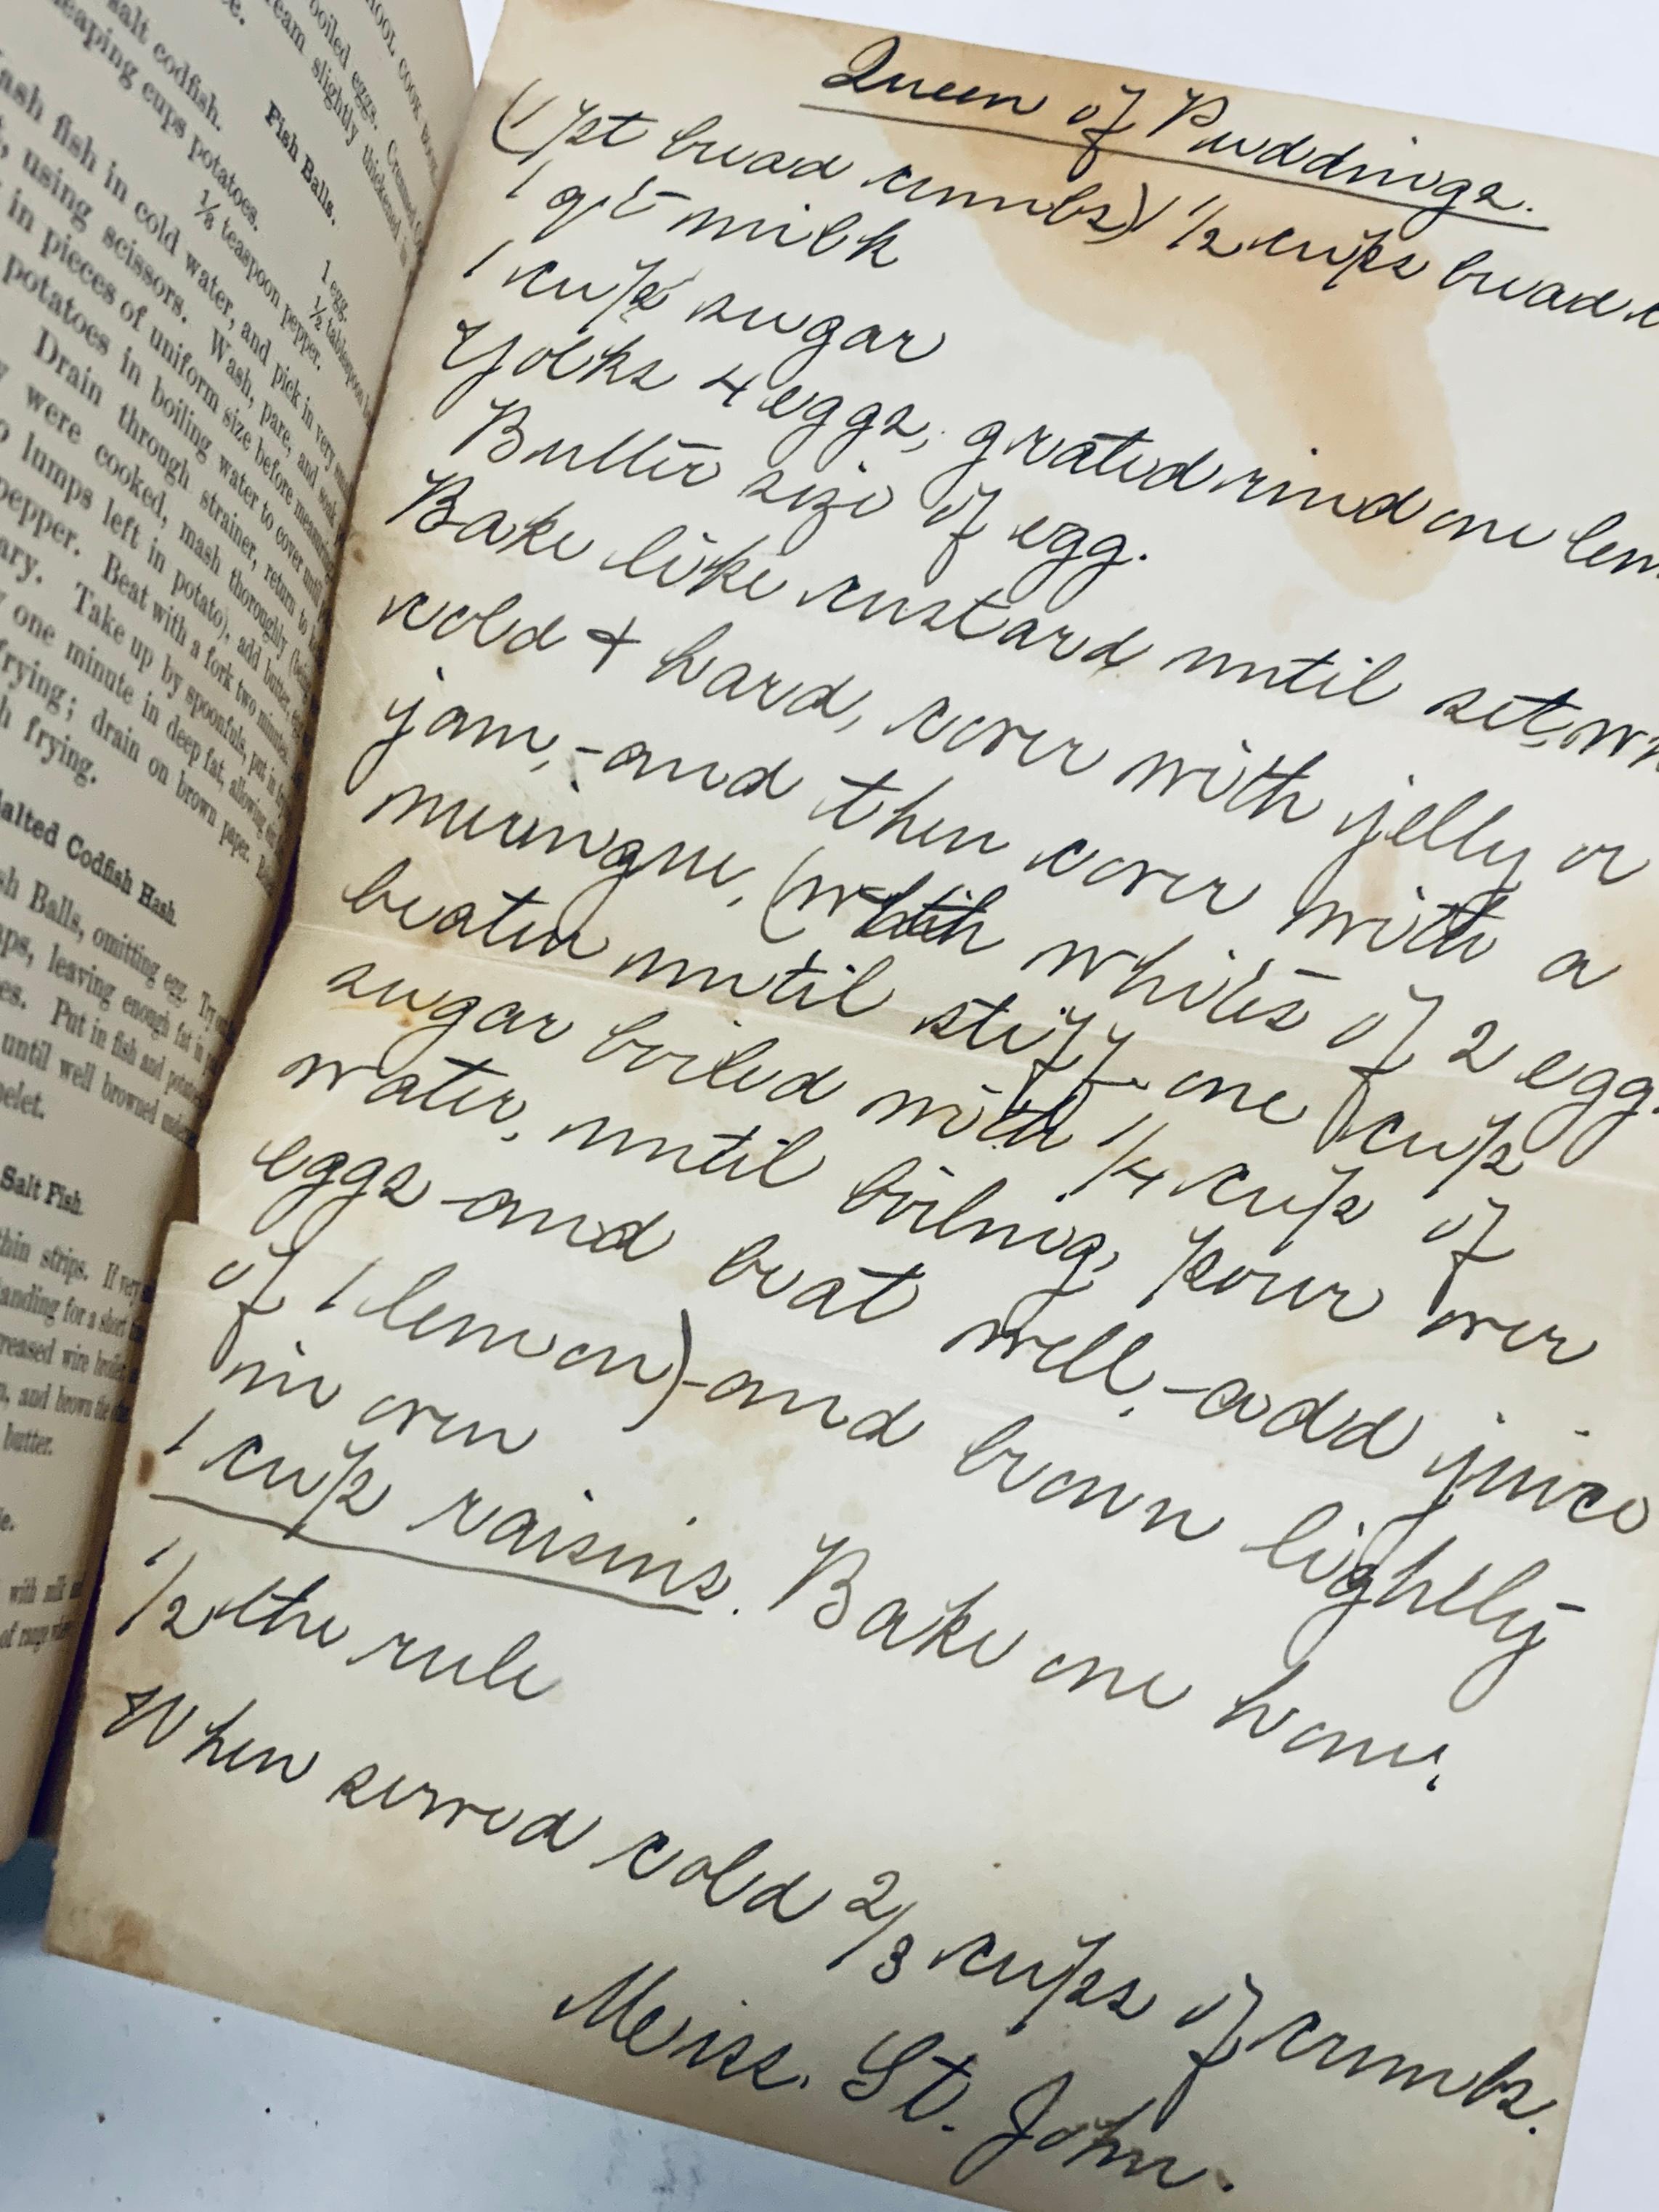 HOOL COOK BOOK
boiled eggs.
ream slightly thickened
salt codfish.
heaping cups potatoes.
Fish Balls.
1 egg.
1/2 tablespoon
1/8 teaspoon pepper.
ash fish in cold water, and pick in very
, using scissors. Wash, pare, and soak
in pieces of uniform size before measuring
potatoes in boiling water to cover until
Drain through strainer, return to
were cooked, mash thoroughly (being
lumps left in potato), add butter,
pepper. Beat with a fork two minutes.
ary. Take up by spoonfuls, put in
one minute in deep fat, allowing
frying; drain on brown paper.
h frying.
Salted Codfish Hash.
sh Balls, omitting egg. Try out
aps, leaving enough fat in
es. Put in fish and potatoes
until well browned
elet.
Salt Fish.
thin strips. If very
anding for a short
reased wire broiler
, and brown the
butter.
with milk
Queen of Puddings.
(1 pt bread crumbs) 1 1/2 cups bread
1 qt milk
1 cup sugar
Yolks 4 eggs, grated rind one
Butter size of egg.
Bake like custard until set,
cold + hard, cover with jelly or
jam, and then cover with a
meringue, (with whites of 2
beaten until stiff, one cup
sugar boiled with 1/4 cup of
water, until boiling, pour over
eggs and beat well, add juice
of 1 lemon) and brown lightly
in oven
1 cup raisins. Bake one hour.
1/2 the rule
When served cold 2/3 cups of crumbs.
St. John.